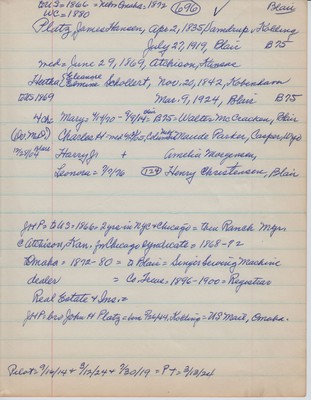 to US = 1866 = Neb Omaha: 1872 (696) ✓ Blair
WC = 1880
Platz, James Hansen, Apr 2, 1835, Sandrup, Kolding
July 27, 1919, Blair B75
md = June 29, 1869, Atchison, Kansas
Hatha Eleonore Emine Schollert, Nov. 20, 1842, Kobenhavn
to US 1869 Mar. 9, 1924, Blair B75
4 ch Mary = 4/4/70 - 9/4/14 Blair B75 = Walter McCracken, Blair
Charles H = Maude Parker, Casper, Wyo
Harry Jr + Amelia Morgensen,
Leonora = 7/7/76 (129) Henry Christensen, Blair
JHP = to US = 1866 = 2 yrs in NYC + Chicago = then Ranch Mgr
c Atchison, Kan. for Chicago Syndicate = 1868-72
to Omaha = 1872-80 = to Blair = Singer Sewing Machine
dealer = Co. Treas. 1896-1900 = Registrar
Real Estate + Ins. =
JHP = bro John H Platz = Kolding = US Mail, Omaha.
Pilot = 9/16/14 + 3/12/24 + 7/30/19 = PT = 3/12/24